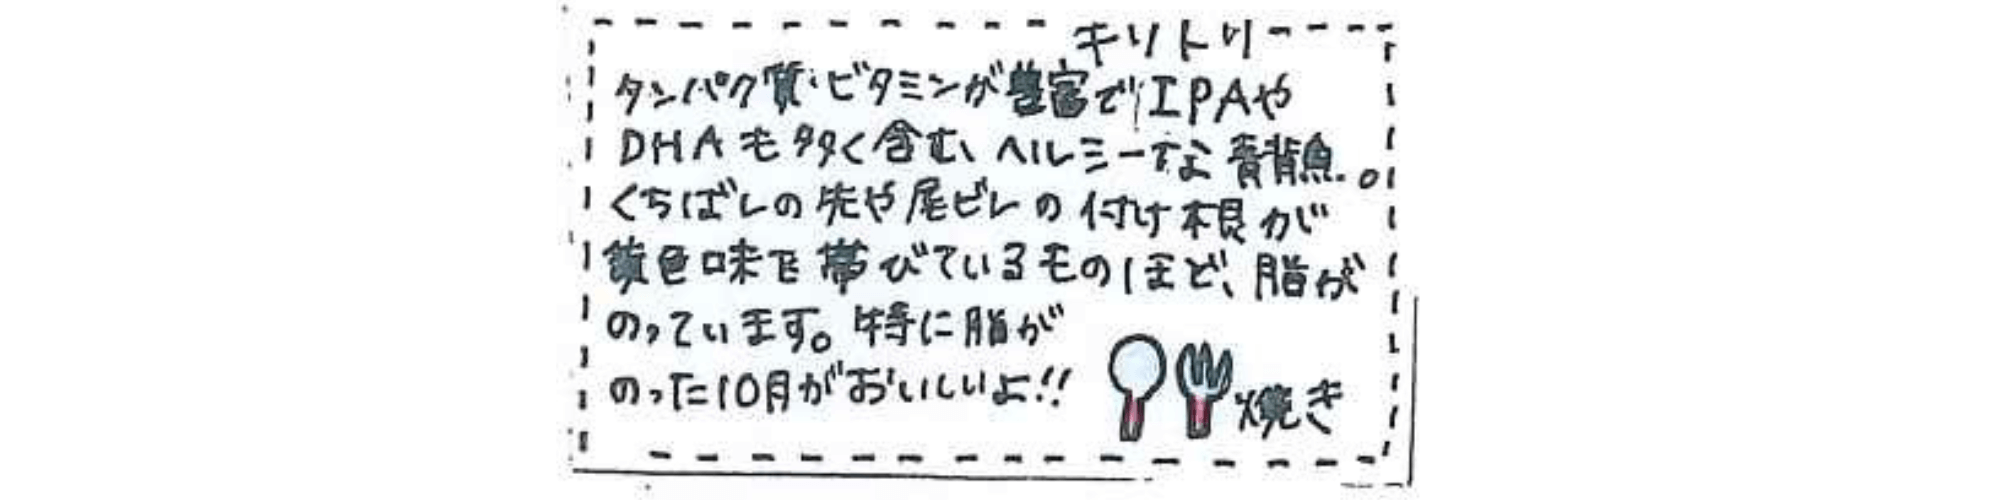 キリトリ
タンパク質・ビタミンが豊富でIPAや
DHAも多く含む、ヘルシーな青背魚。
くちばしの先や尾ビレの付け根が
黄色味を帯びているものほど、脂が
のっています。特に脂が
のった10月がおいしいよ!!
焼き